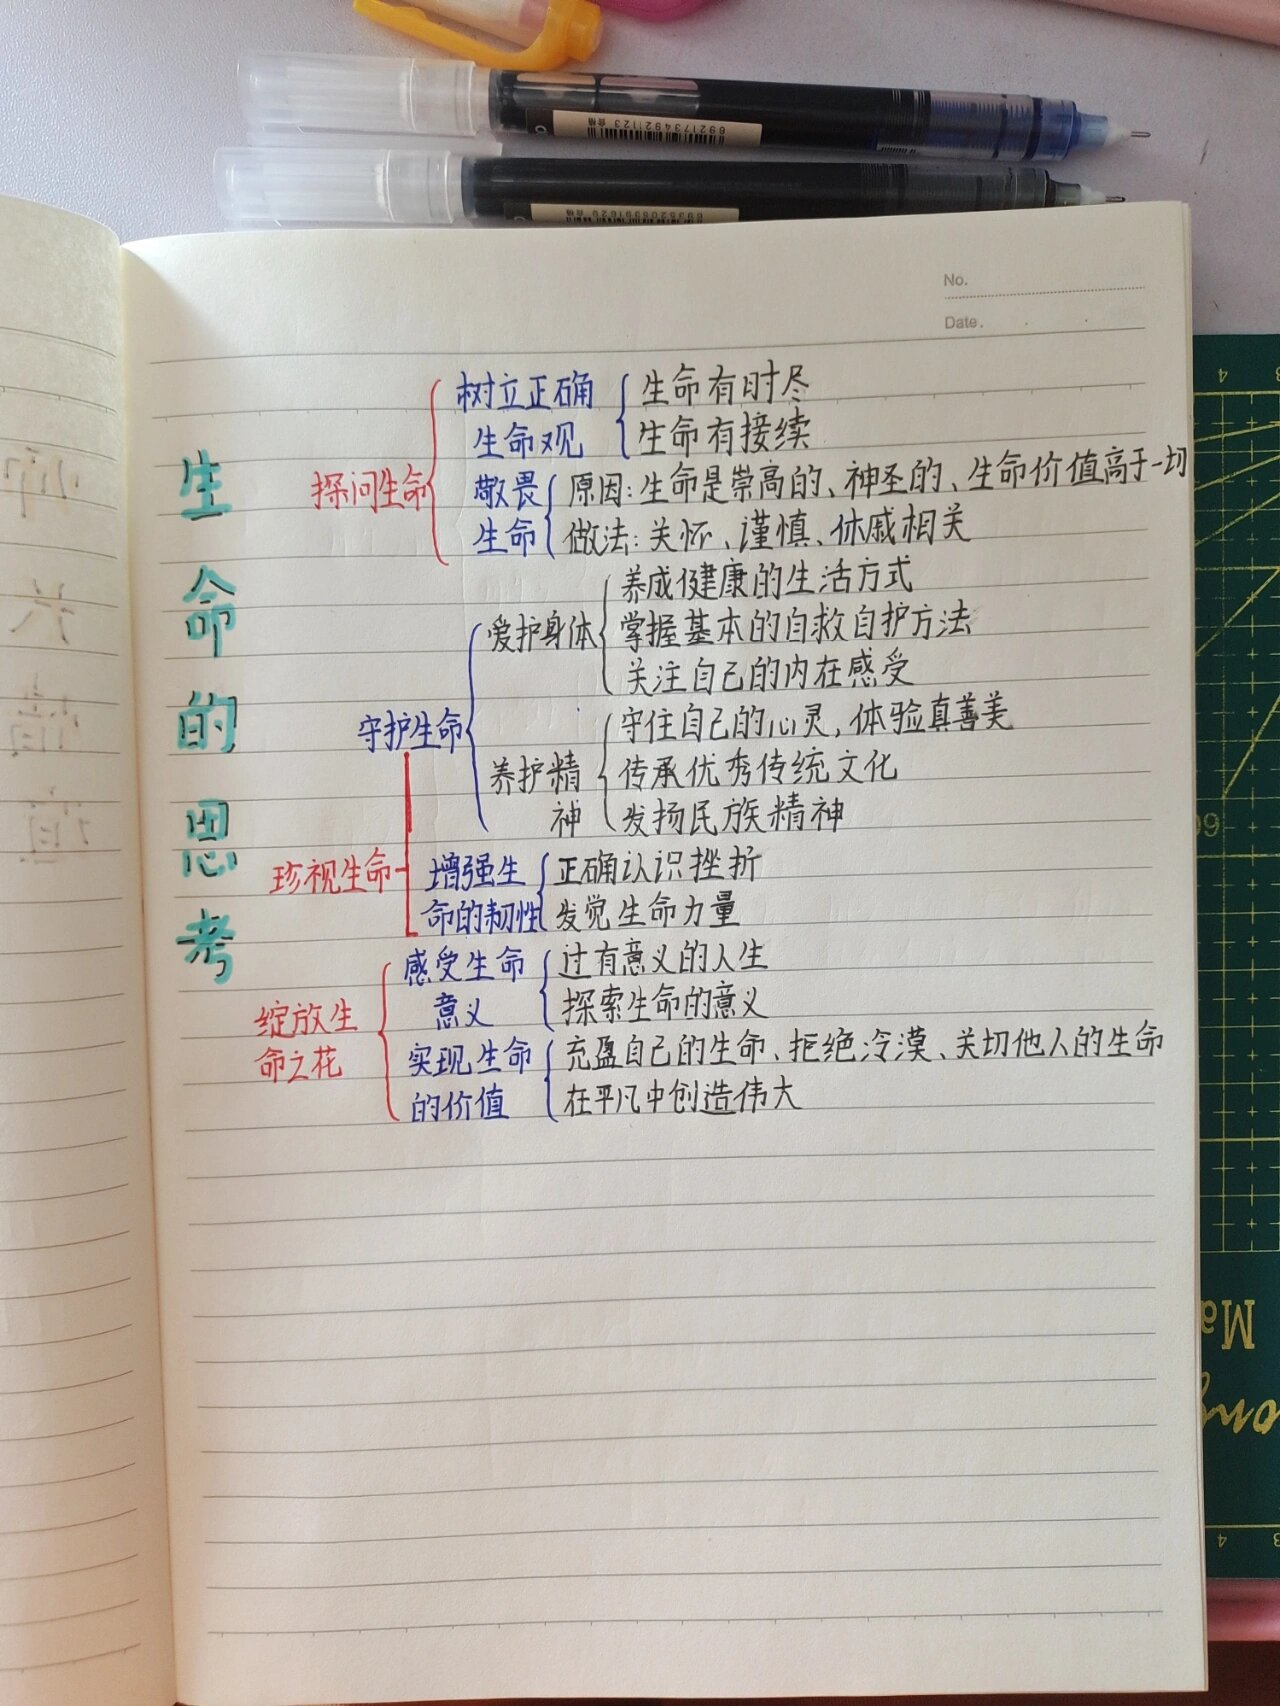 6921734921123
合格
6935205391629
合格
No.
Date.
生命的思考
探问生命
树立正确
生命观
生命有时尽
生命有接续
敬畏
生命
原因：生命是崇高的、神圣的、生命价值高于一切
做法：关怀、谨慎、休戚相关
珍视生命
守护生命
爱护身体
养成健康的生活方式
掌握基本的自救自护方法
关注自己的内在感受
养护精
神
守住自己的心灵，体验真善美
传承优秀传统文化
发扬民族精神
增强生
命的韧性
正确认识挫折
发觉生命力量
绽放生
命之花
感受生命
意义
过有意义的人生
探索生命的意义
实现生命
的价值
充盈自己的生命、拒绝冷漠、关切他人的生命
在平凡中创造伟大
4
Ma
4